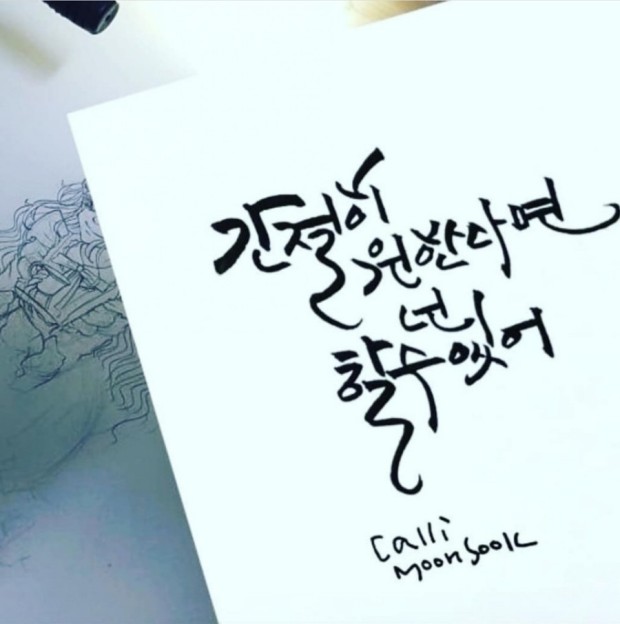 간절히
원한다면
넌
할수있어
Calli
Moonsook